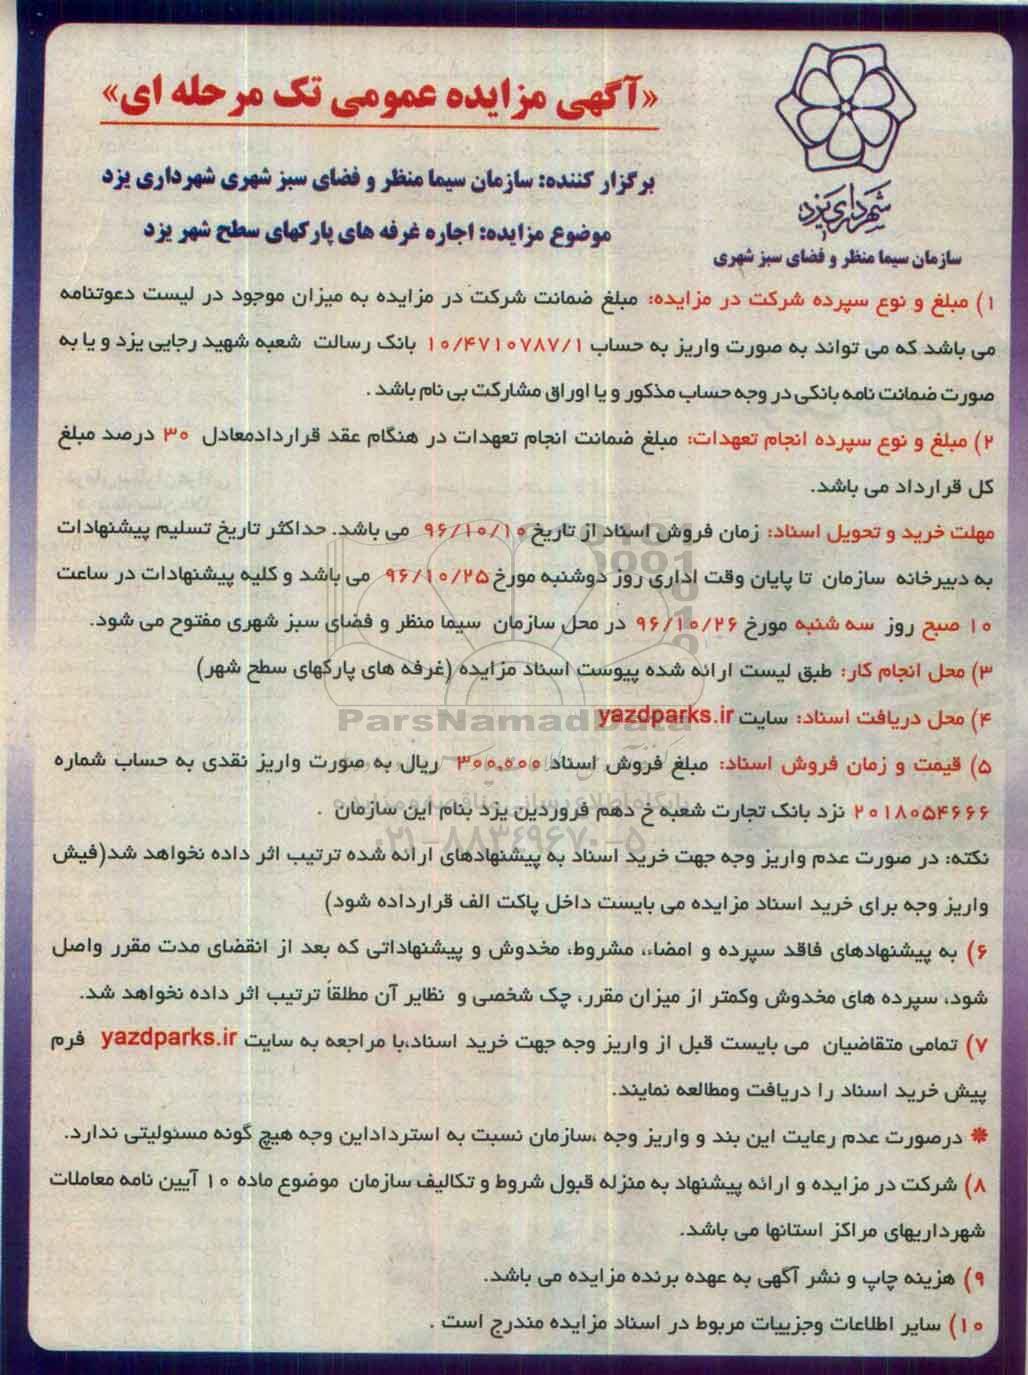 «آگهی مزایده عمومی تک مرحله ای»
برگزار کننده: سازمان سیما منظر و فضای سبز شهری شهرداری یزد
موضوع مزایده: اجاره غرفه های پارکهای سطح شهر یزد
شهرداری یزد
سازمان سیما منظر و فضای سبز شهری
۱) مبلغ و نوع سپرده شرکت در مزایده: مبلغ ضمانت شرکت در مزایده به میزان موجود در لیست دعوتنامه
می باشد که می تواند به صورت واریز به حساب ۱۰/۴۷۱۰۷۸۷/۱ بانک رسالت شعبه شهید رجایی یزد و یا به
صورت ضمانت نامه بانکی در وجه حساب مذکور و یا اوراق مشارکت بی نام باشد .
۲) مبلغ و نوع سپرده انجام تعهدات: مبلغ ضمانت انجام تعهدات در هنگام عقد قراردادمعادل ۳۰ درصد مبلغ
کل قرارداد می باشد.
مهلت خرید و تحویل اسناد: زمان فروش اسناد از تاریخ ۹۶/۱۰/۱۰ می باشد. حداکثر تاریخ تسلیم پیشنهادات
به دبیرخانه سازمان تا پایان وقت اداری روز دوشنبه مورخ ۹۶/۱۰/۲۵ می باشد و کلیه پیشنهادات در ساعت
۱۰ صبح روز سه شنبه مورخ ۹۶/۱۰/۲۶ در محل سازمان سیما منظر و فضای سبز شهری مفتوح می شود.
۳) محل انجام کار: طبق لیست ارائه شده پیوست اسناد مزایده (غرفه های پارکهای سطح شهر)
۴) محل دریافت اسناد: سایت yazdparks.ir
ParsNamadData
۵) قیمت و زمان فروش اسناد: مبلغ فروش اسناد ۳۰۰.۰۰۰ ریال به صورت واریز نقدی به حساب شماره
۲۰۱۸۰۵۴۶۶۶ نزد بانک تجارت شعبه خ دهم فروردین یزد بنام این سازمان .
۰۲۱-۸۸۳۴۹۶۷۰-۵
نکته: در صورت عدم واریز وجه جهت خرید اسناد به پیشنهادهای ارائه شده ترتیب اثر داده نخواهد شد(فیش
واریز وجه برای خرید اسناد مزایده می بایست داخل پاکت الف قرارداده شود)
۶) به پیشنهادهای فاقد سپرده و امضاء، مشروط، مخدوش و پیشنهاداتی که بعد از انقضای مدت مقرر واصل
شود، سپرده های مخدوش وکمتر از میزان مقرر، چک شخصی و نظایر آن مطلقاً ترتیب اثر داده نخواهد شد.
۷) تمامی متقاضیان می بایست قبل از واریز وجه جهت خرید اسناد،با مراجعه به سایت yazdparks.ir فرم
پیش خرید اسناد را دریافت ومطالعه نمایند.
* درصورت عدم رعایت این بند و واریز وجه ،سازمان نسبت به استرداداین وجه هیچ گونه مسئولیتی ندارد.
۸) شرکت در مزایده و ارائه پیشنهاد به منزله قبول شروط و تکالیف سازمان موضوع ماده ۱۰ آیین نامه معاملات
شهرداریهای مراکز استانها می باشد.
۹) هزینه چاپ و نشر آگهی به عهده برنده مزایده می باشد.
۱۰) سایر اطلاعات وجزییات مربوط در اسناد مزایده مندرج است .